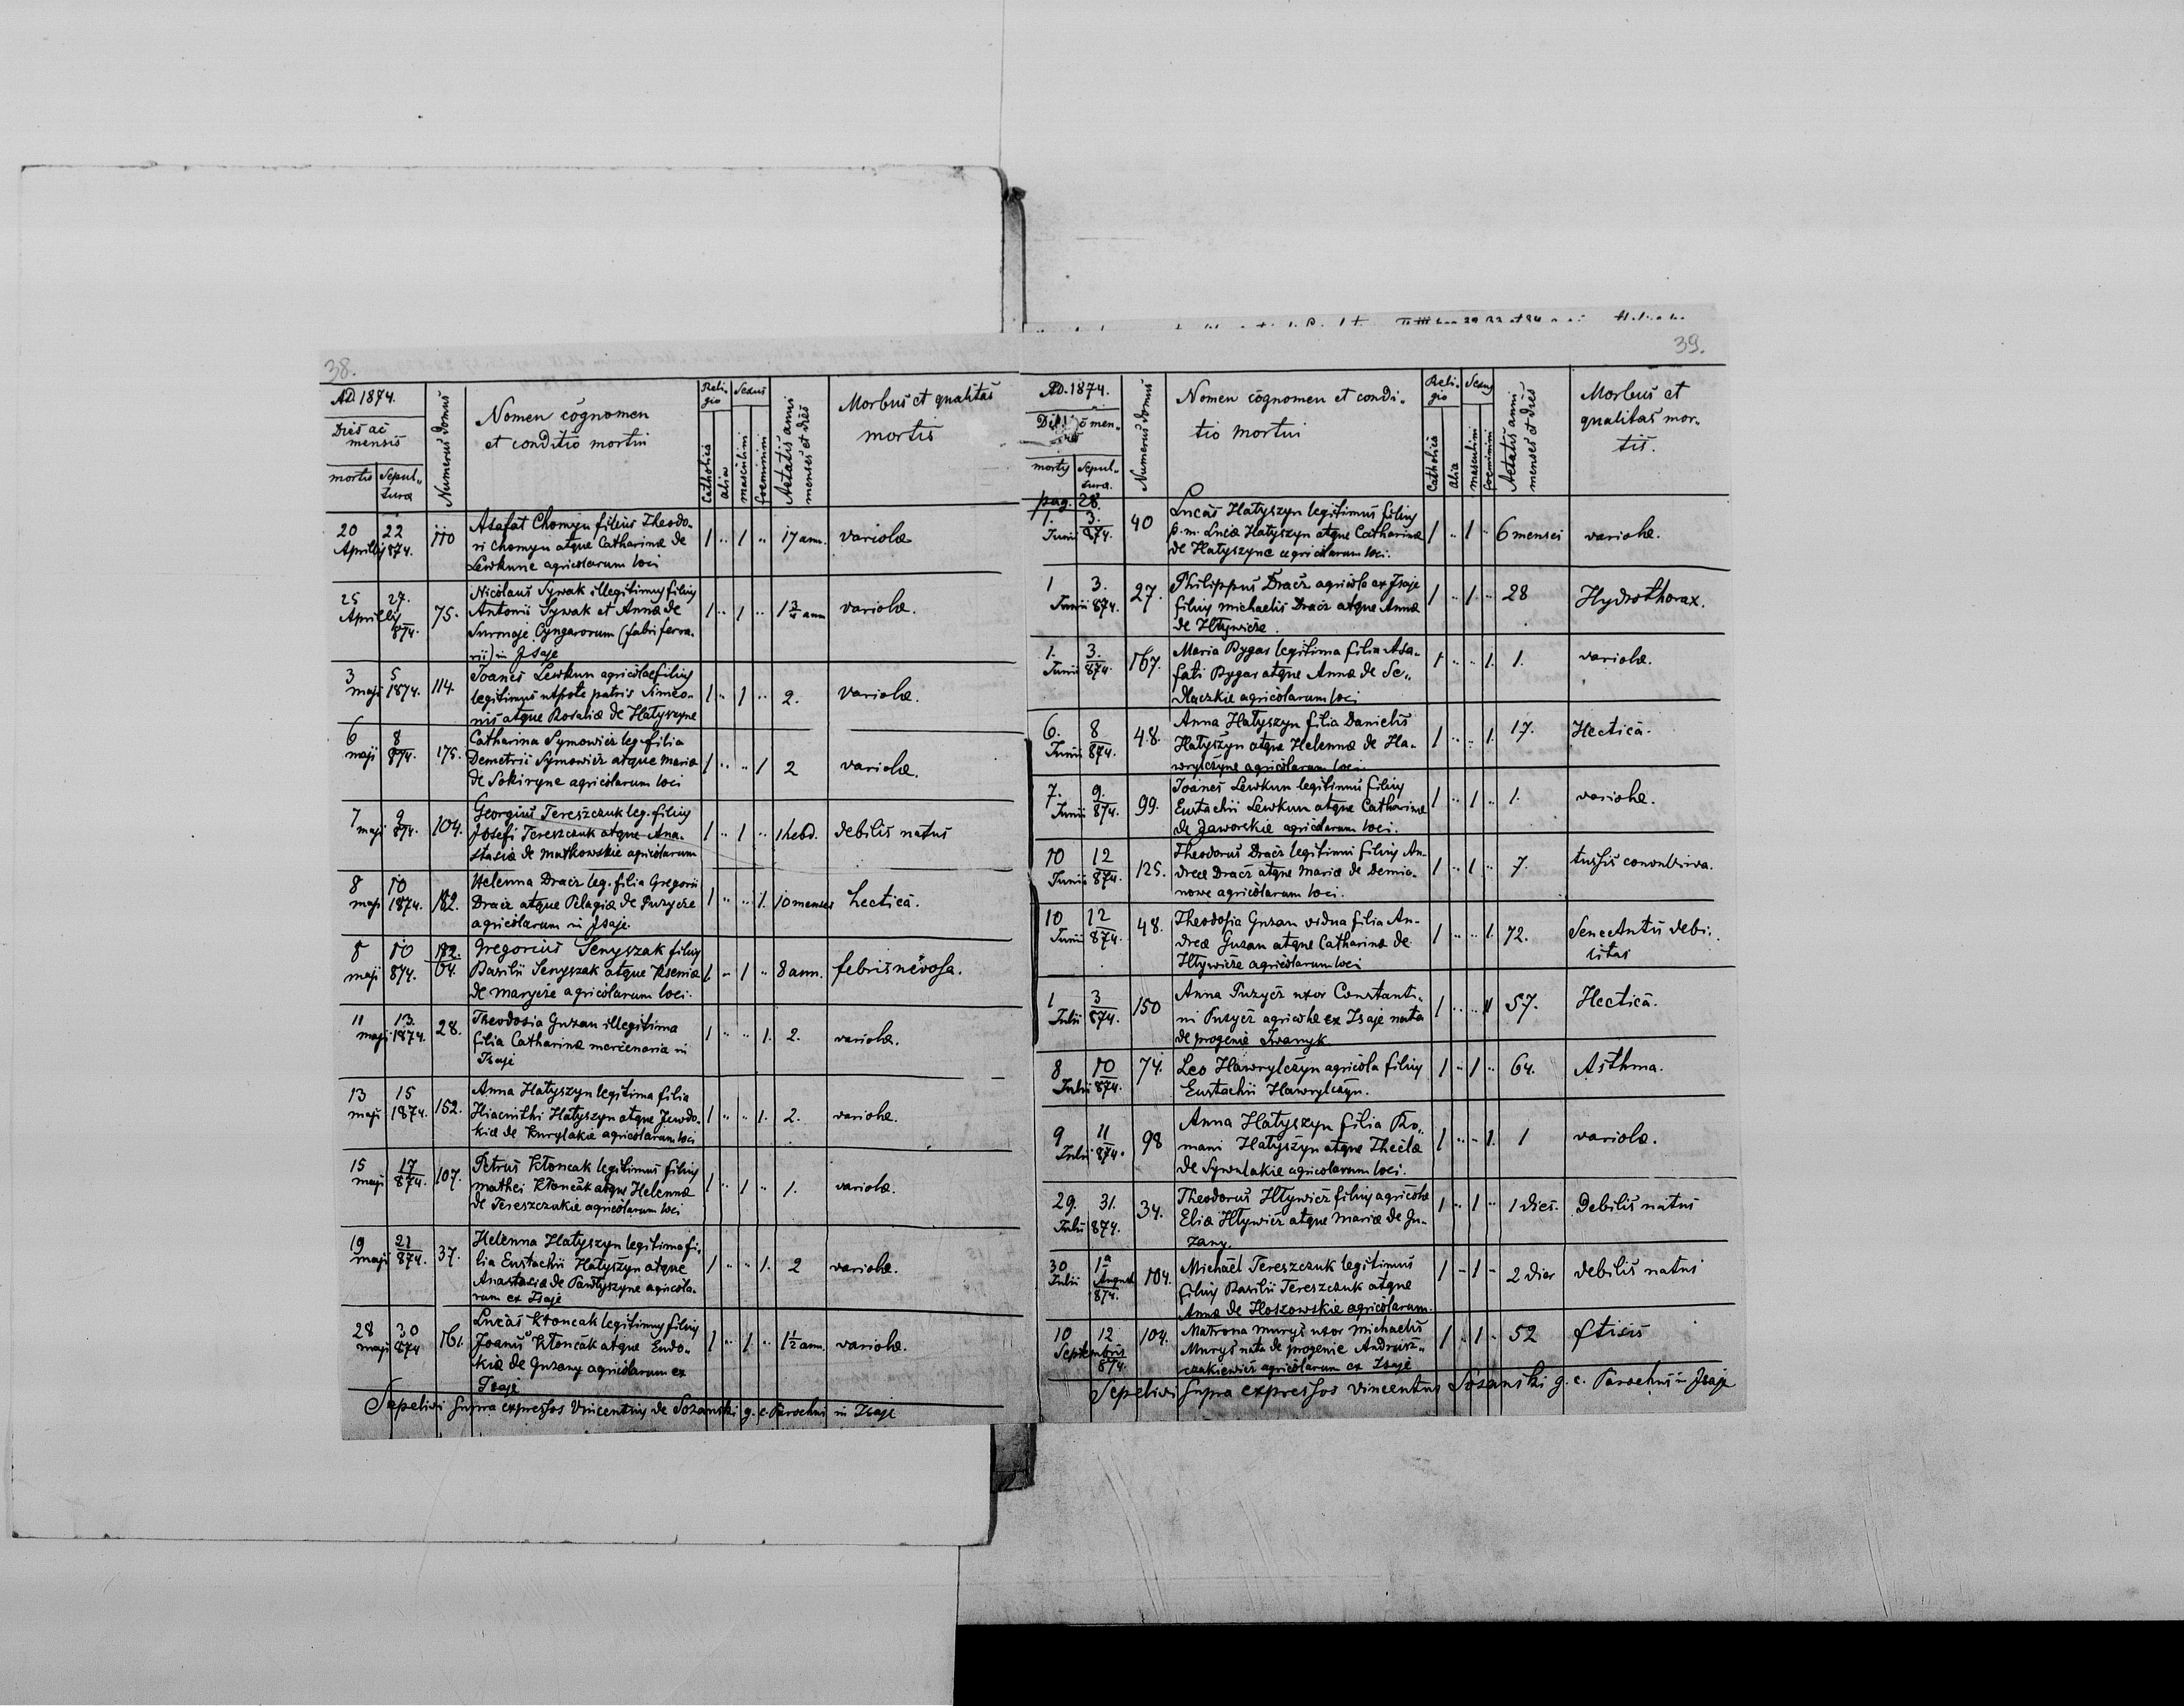 38.
AD. 1874.
Dies ac
mensis
mortis
Sepul-
turæ
Numerus domus
Nomen cognomen
et conditio mortui
Reli-
gio
Catholica
alia
Sexus
masculini
foeminini
Aetatis anni
menses et dies
Morbus et qualitas
mortis
20 22 110 Asafat Chomyn filius Theodo-
Aprilis 874. ri Chomyn atque Catharinæ de 1 .. 1 .. 17 ann. variolæ
Lewkune agricolarum loci
25 27. Nicolaus Sywak illegitimus filius
Aprilis 75. Antonii Sywak et Annæ de 1 .. 1 .. 1 3/4 ann variolæ.
874. Surmaje Cyngarorum (fabri ferra-
rii) in Isaje
3 5 Joanes Lewkun agricolæ filius
maji 1874. 114. legitimus utpote patris Simeo- 1 .. 1 .. 2. variolæ.
nis atque Rosaliæ de Hatyszyne
6 8 Catharina Symowicz leg. filia
maji 874. 175. Demetrii Symowicz atque Mariæ 1 .. .. 1 2 variolæ.
de Sokiryne agricolarum loci
7 9 Georgius Tereszczuk leg. filius
maji 874. 104. Josefi Tereszczuk atque Ana- 1 .. 1 .. 1 hebd. debilis natus
stasiæ de Matkowskie agricolarum
8 10 Helenna Dracz leg. filia Gregorii
maji 1874. 182. Dracz atque Pelagiæ de Puzycze 1 .. .. 1. 10 menses hectica.
agricolarum in Isaje.
8 10 182. Gregorius Senyszak filius
maji 874. 64. Basilii Senyszak atque Kseniæ 1. .. 1 .. 8 ann. febris nevosa.
de Marycze agricolarum loci.
11 13. Theodosia Guzan illegitima
maji 1874. 28. filia Catharinæ mercenaria in 1 .. .. 1. 2. variolæ.
Isaje
13 15 Anna Hatyszyn legitima filia
maji 1874. 152. Hiacinthi Hatyszyn atque Jewdo- 1 .. .. 1. 2. variolæ.
kiæ de Kurylakie agricolarum loci
15 17 Petrus Kłoncak legitimus filius
maji 874. 107. Mathei Kłoncak atque Helennæ 1 .. 1 .. 1. variolæ.
de Tereszczukie agricolarum loci
19 21 Helenna Hatyszyn legitima fi-
maji 874. 37. lia Eustachii Hatyszyn atque 1 .. .. 1. 2 variolæ.
Anastasiæ de Pawłyszyne agricola-
rum ex Isaje
28 30 Lucas Kłoncak legitimus filius
maji 874 161. Joanis Kłoncak atque Eudo- 1 .. 1. .. 1 1/2 ann. variolæ.
kiæ de Guzany agricolarum ex
Isaje
Sepelivi supra expressos Vincentius de Sozanski g. c. Parochus in Isaje
39.
AD. 1874.
mortis
Sepul-
turæ.
Numerus domus
Nomen cognomen et condi-
tio mortui
Reli-
gio
Catholica
alia
Sexus
masculini
foeminini
Aetatis anni
menses et dies
Morbus et
qualitas mor-
tis.
pag. 28.
1. 3. 40 Lucas Hatyszyn legitimus filius
Junii 874. p. m. Lucæ Hatyszyn atque Catharinæ 1 .. 1 .. 6 menses variolæ.
de Hatyszyne agricolarum loci.
1 3. 27. Philippus Dracz agricola ex Isaje
Junii 874. filius Michaelis Dracz atque Annæ 1 .. 1. .. 28 Hydrothorax.
de Hływicze.
1. 3. Maria Bygar legitima filia Asa-
Junii 874. 167. fati Bygar atque Annæ de Se- 1 .. .. 1. 1. variolæ.
dlaczkie agricolarum loci
6. 8 Anna Hatyszyn filia Danielis
Junii 874. 48. Hatyszyn atque Helennæ de Ha- 1 .. .. 1. 17. Hectica.
wrylczyne agricolarum loci.
7. 9. Joanes Lewkun legitimus filius
Junii 874. 99. Eustachii Lewkun atque Catharinæ 1 .. 1 .. 1. variolæ.
de Jaworskie agricolarum loci.
10 12 Theodorus Dracz legitimi filius An-
Junii 874. 125. dreæ Dracz atque Mariæ de Demia- 1 .. 1 .. 7. tussis convulsiva.
nowe agricolarum loci.
10 12 48. Theodosia Guzan vidua filia An-
Junii 874. dreæ Guzan atque Catharinæ de 1 .. .. 1. 72. Senectutis debi-
Hływicze agricolarum loci litas
1 3 Anna Puzycz uxor Constanti-
Julii 874. 150 ni Puzycz agricolæ ex Isaje nata 1 .. .. 1 57. Hectica.
de progenie Iwanyk.
8 10 74. Leo Hawrylczyn agricola filius 1 .. 1 .. 64. Asthma.
Julii 874. Eustachii Hawrylczyn.
9 11 Anna Hatyszyn filia Ro-
Julii 874. 98 mani Hatyszyn atque Theclæ 1 .. .. 1. 1 variolæ.
de Sywulakie agricolarum loci.
29. 31. 34. Theodorus Hływicz filius agricolæ
Julii 874. Eliæ Hływicz atque Mariæ de Gu- 1 .. 1 .. 1 dies. Debilis natus
zany.
30 1a Michaël Tereszczuk legitimus
Julii August 104. filius Basilii Tereszczuk atque 1 - 1 - 2 dies debilis natus
874. Annæ de Hoszowskie agricolarum.
10 12 104. Matrona Murys uxor Michaelis
Septembris Murys nata de progenie Andruisz- 1 .. 1 .. 52 ftisis
874. czakiewicz agricolarum ex Isaje
Sepelivi supra expressos Vincentius Sozanski g. c. Parochus in Isaje